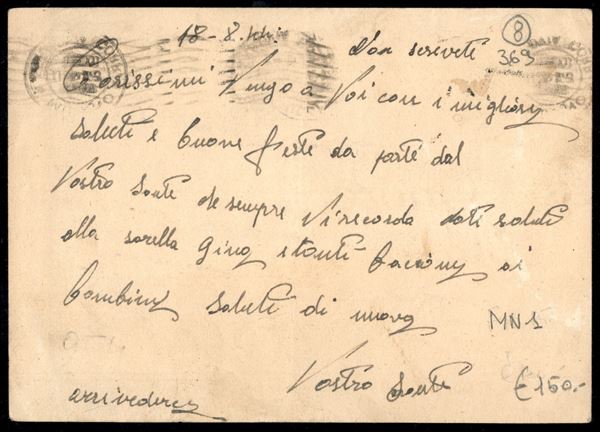 18-8.44.
8
369
Non scrivete
Carissimi Vengo a Voi con i migliory
saluti e buone feste da parte dal
Vostro Sante che sempre Vi ricorda dati saluti
alla sorella Gina e tanti baciony ai
bambiny saluti di nuovo
MN1
Vostro Sante
€150.-
arrivedercy